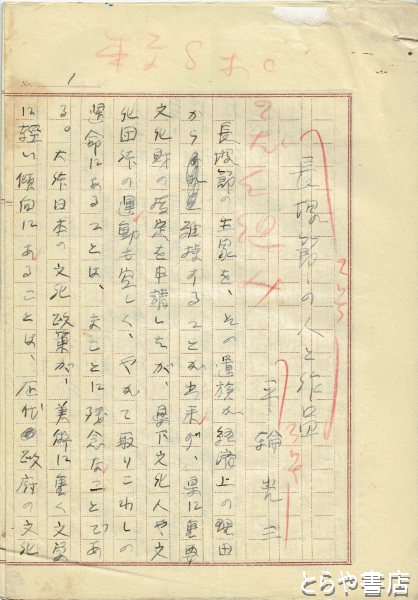 長塚節の人と作品
平輪光三
長塚節の生家を、その遺族が経済上の理由
から維持することが出来ず、県に重要
文化財の指定を申請したが、県下文化人や文
化団体の運動も空しく、やがて取りこわしの
運命にあることは、まことに残念なことであ
る。大体日本の文化政策が、美術に重く文学
に軽い傾向にあることは、歴代の政府の文化
No. 1
とらや書店